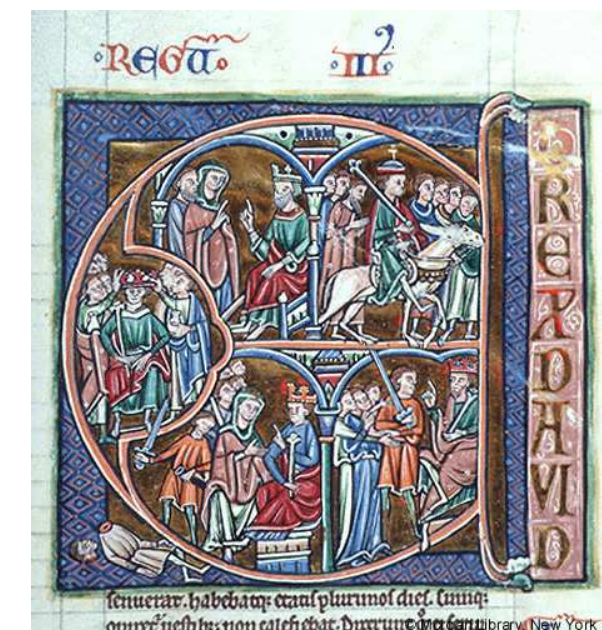 REGUm III
ET REX DAVID
senuerat. habebatq; etatis plurimos dies. Cumq;
operiret᷑ uestib; non calefiebat. Dixerunt
© Morgan Library, New York